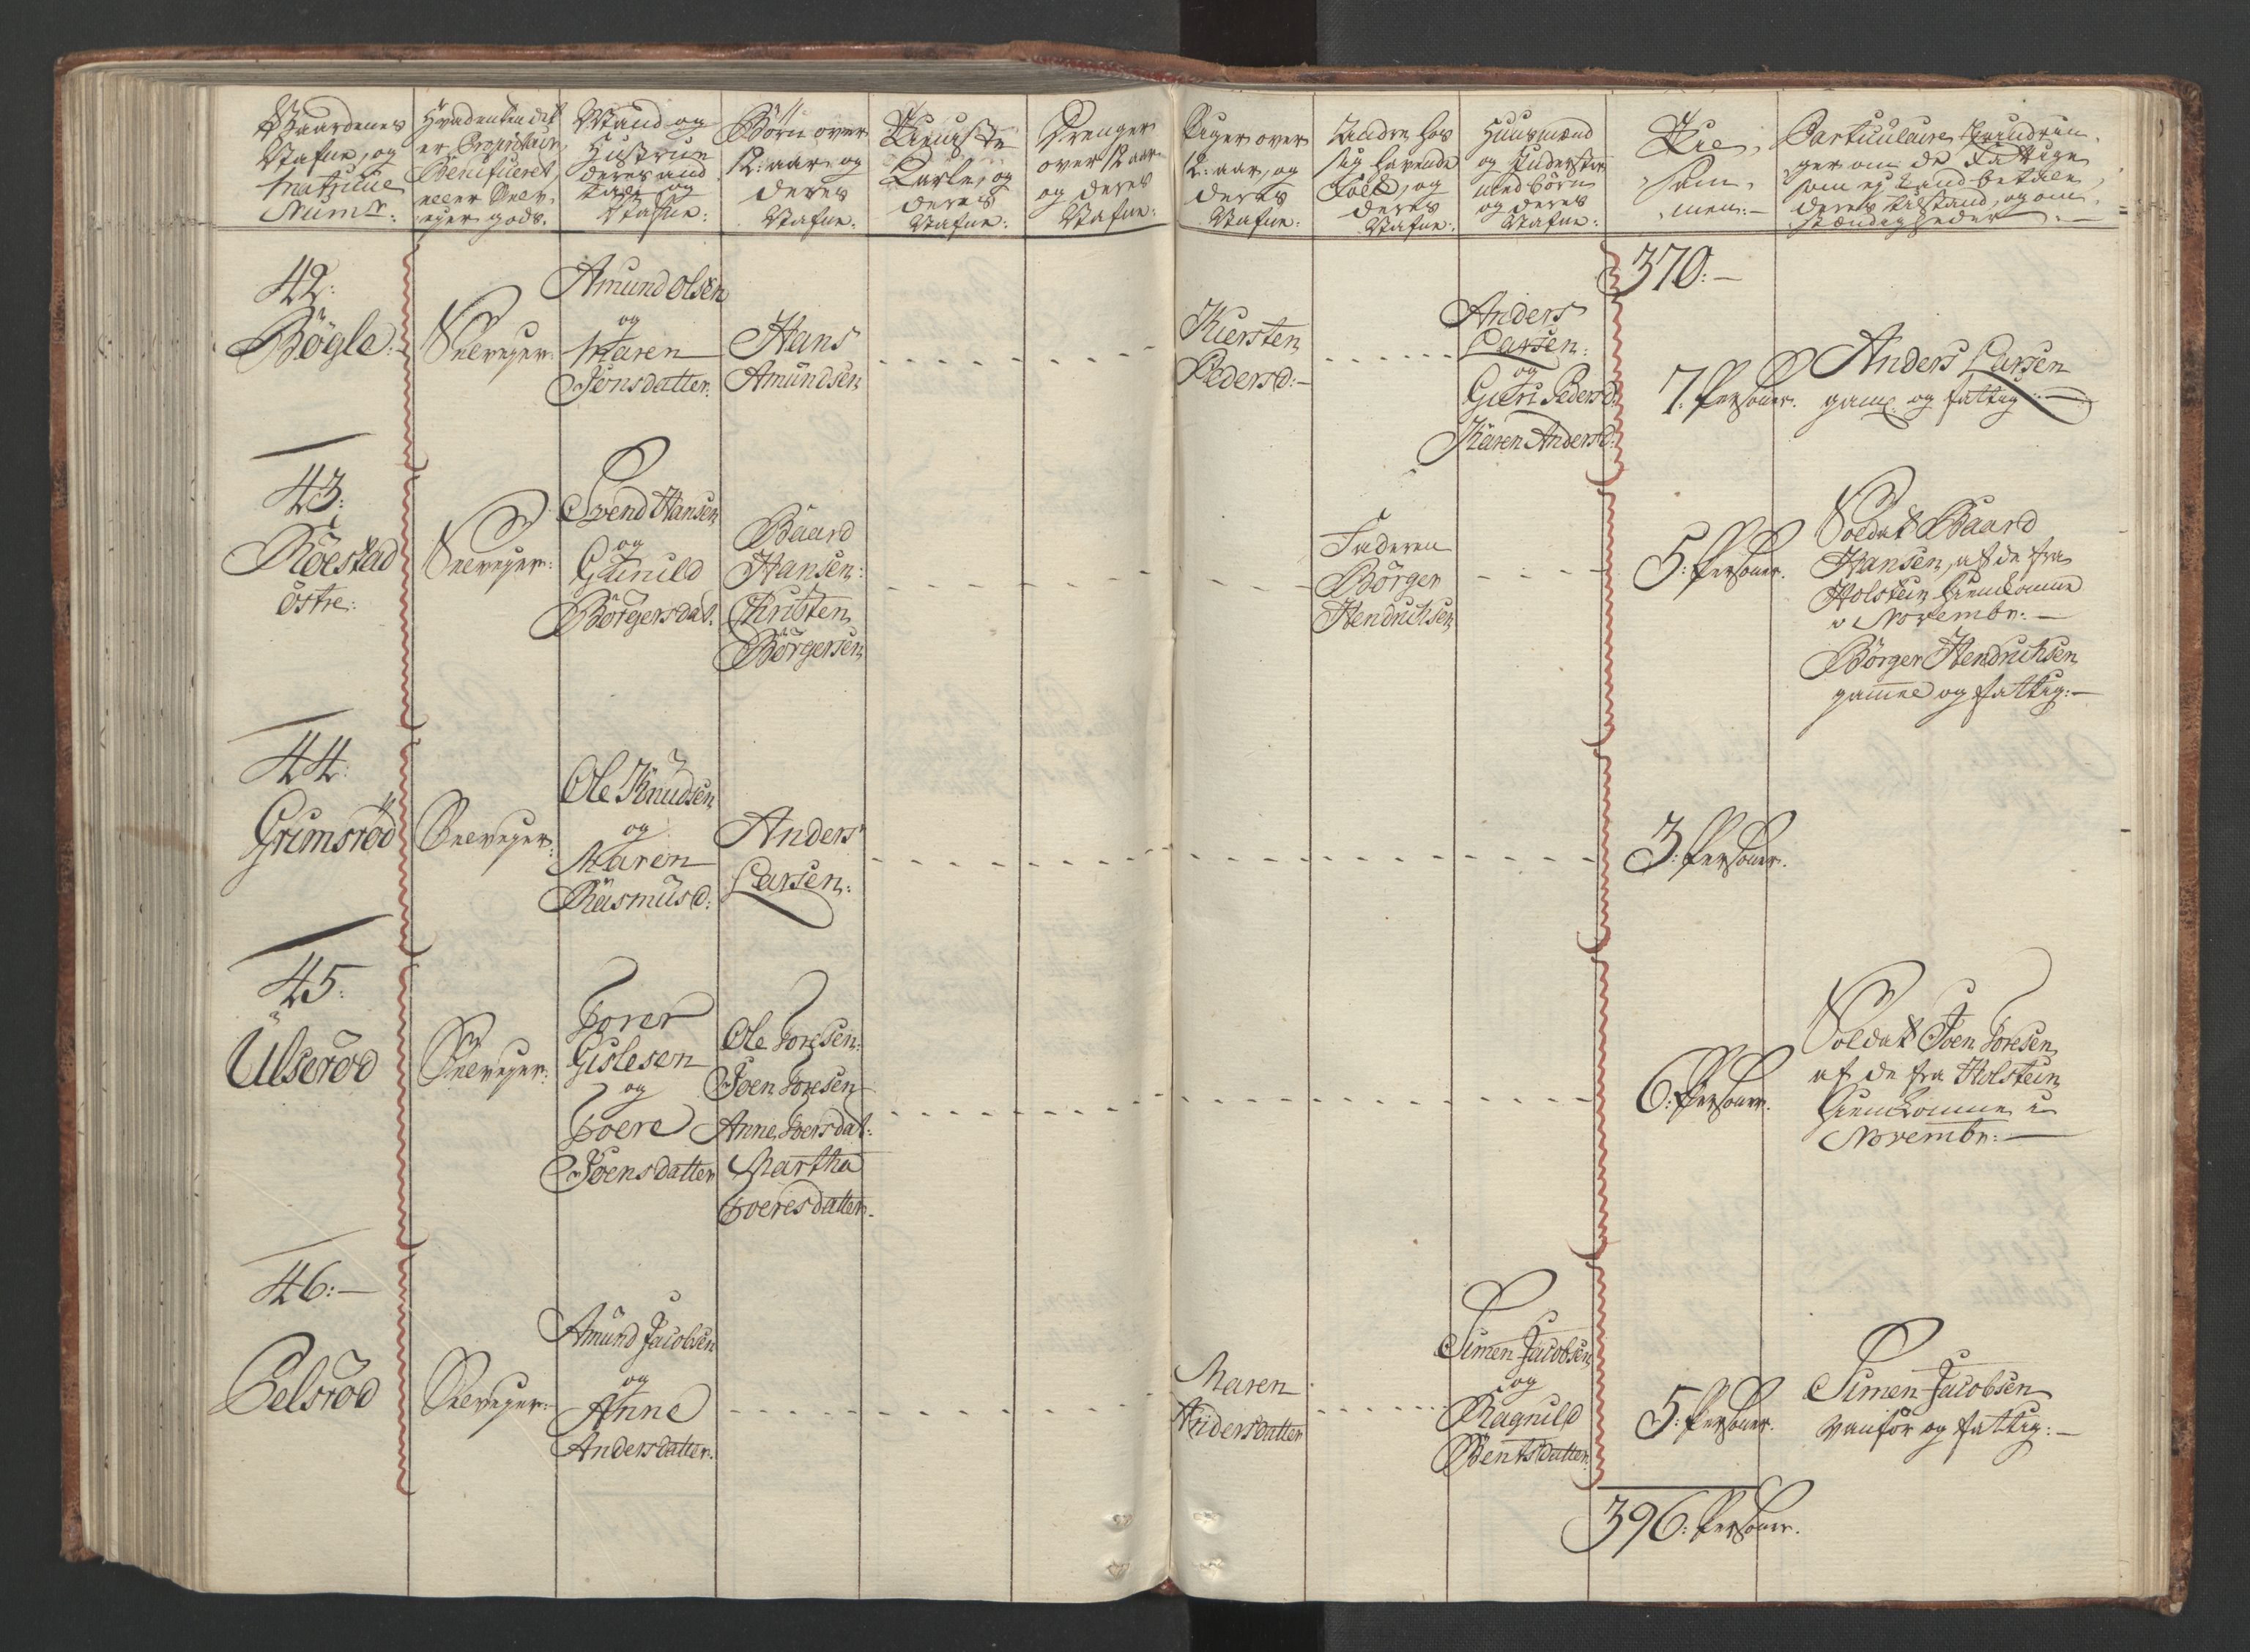 Gaardenes
Nafne, og
Matricue
Num:
Hvadenten det
er Proprietair
Benificeret,
eller Selv-
ejer gods.
Mand og
Hustrue
deres
og
Nafne:
Börn over
12: aar, og
deres
Nafne:
Tieniste
Karle, og
deres
Nafne:
Drenger
over 12 aar
og deres
Nafne:
Piger over
12: aar, og
deres
Nafne:
Andre hos
sig havende
Folk, og
deres
Nafne:
Huusmænd
og Inderster
med börn
og deres
Nafne:
Til-
sam-
men:-
Particulaire Erindrin-
ger om de Fattige
som ej kand betale,
deres tilstand, og om-
stændigheder:-
370:-
42:
Bögle:
Selvejer:
Amund Olsen
og
Maren
Jonsdatter.
Hans
Amundsen
Kiersten
Pedersd:-
Anders
Larsen:
og
Guri Pedersd:
Karen Andersd:
7: Personer.
Anders Larsen
gaml og fattig:-
43:
Röestad
östre:
Selvejer:
Svend Hansen
og
Gunild
Börgersdat:
Baard
Hansen:
Christen
Börgersen
Faderen
Börger
Hendrichsen
5: Personer.
Soldat Baard
Hansen, af de fra
Holstein hiemkomne
i Novembr:-
Börger Hendrichsen
gammel og fattig:-
44:
Grimsröd
Selvejer:
Ole Knudsen
og
Maren
Rasmusd:
Anders
Larsen:
3: Personer.
45:
Ulseröd
Selvejer:
Torer
Gislesen
og
Toere
Joensdatter
Ole Toresen:
Joen Toresen
Anne Toersdat:
Martha
Toeresdatter.
6: Personer.
Soldat Joen Toresen
af de fra Holstein
hiemkomne i
Novembr:-
46:-
Pelsröd
Selvejer:
Amund Jacobsen
og
Anne
Andersdatter.
Maren
Andersdatter
Simen Jacobsen
og
Ragnild
Bentsdatter.
5: Personer.
Simen Jacobsen
vanför og fattig:-
396: Personer.